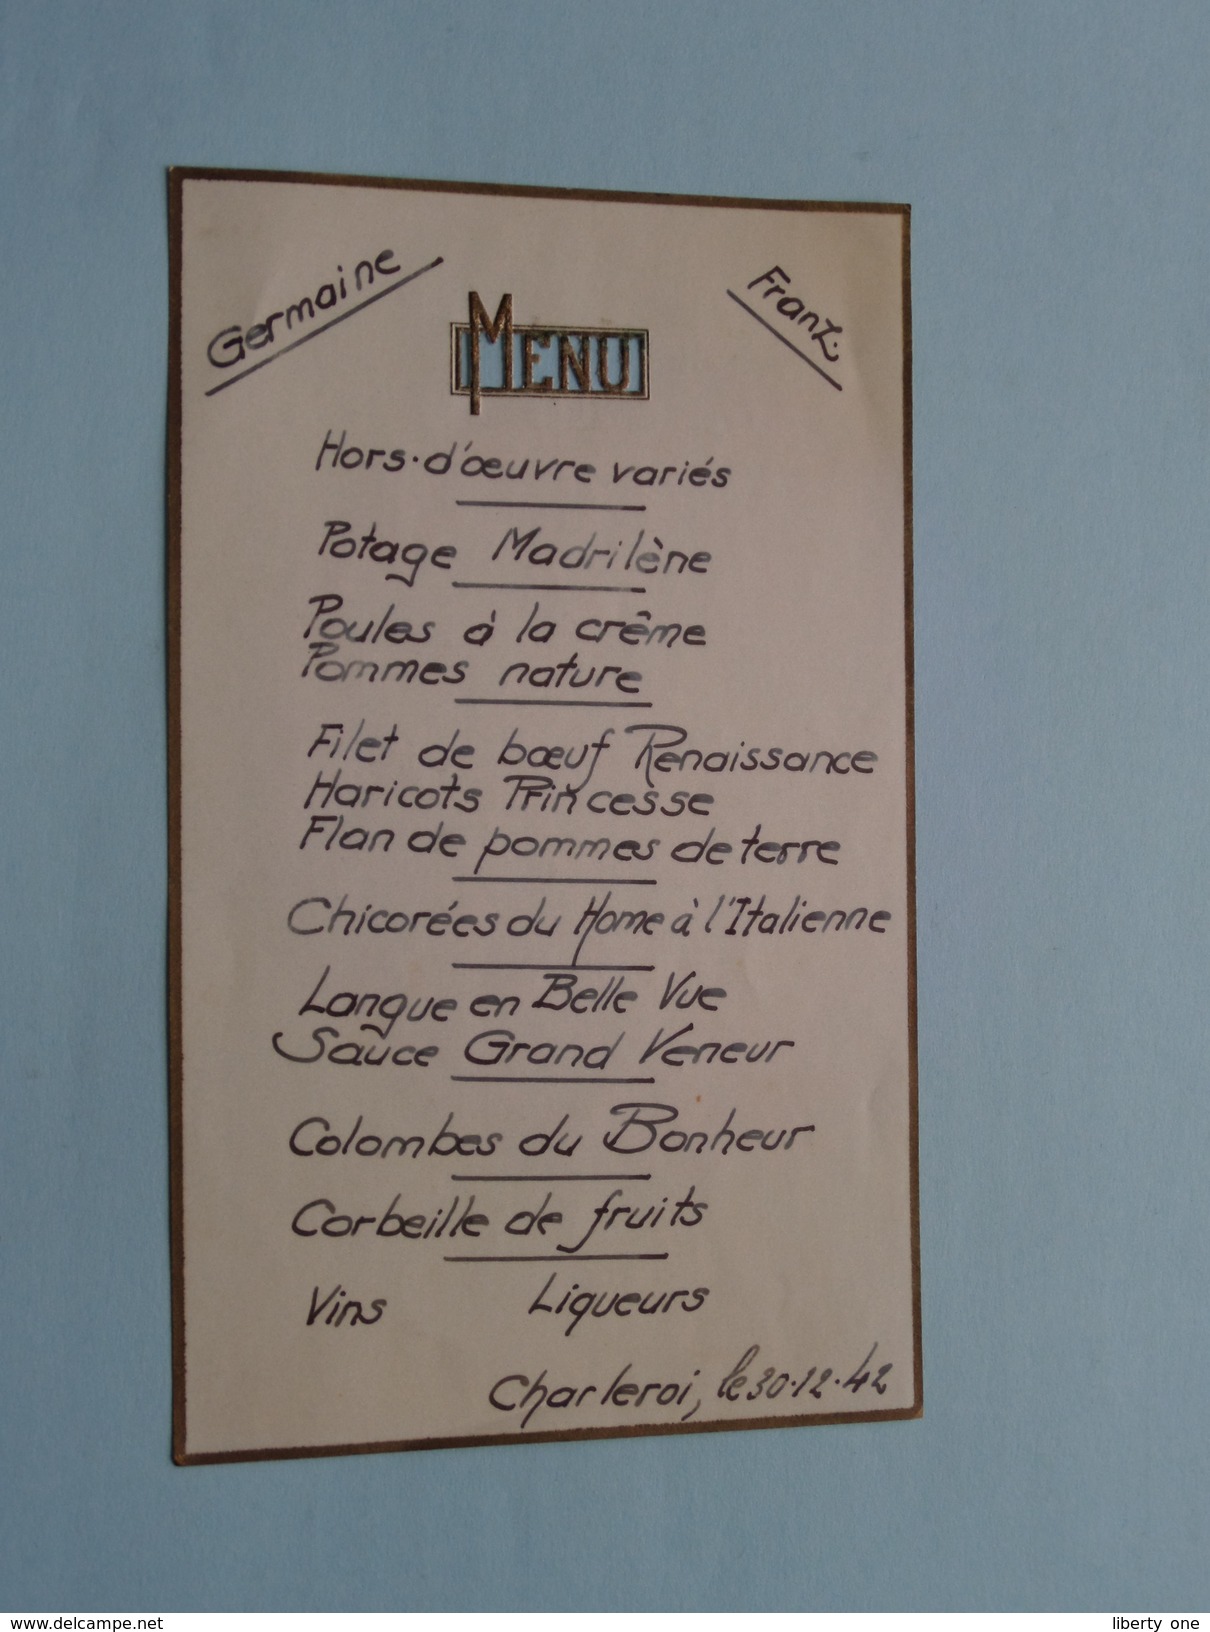 Germaine
Franz.
MENU
Hors-d'œuvre variés
Potage Madrilène
Poules à la crême
Pommes nature
Filet de bœuf Renaissance
Haricots Princesse
Flan de pommes de terre
Chicorées du Home à l'Italienne
Langue en Belle Vue
Sauce Grand Veneur
Colombes du Bonheur
Corbeille de fruits
Vins Liqueurs
Charleroi, le 30.12.42
https://www.delcampe.net
liberty_one